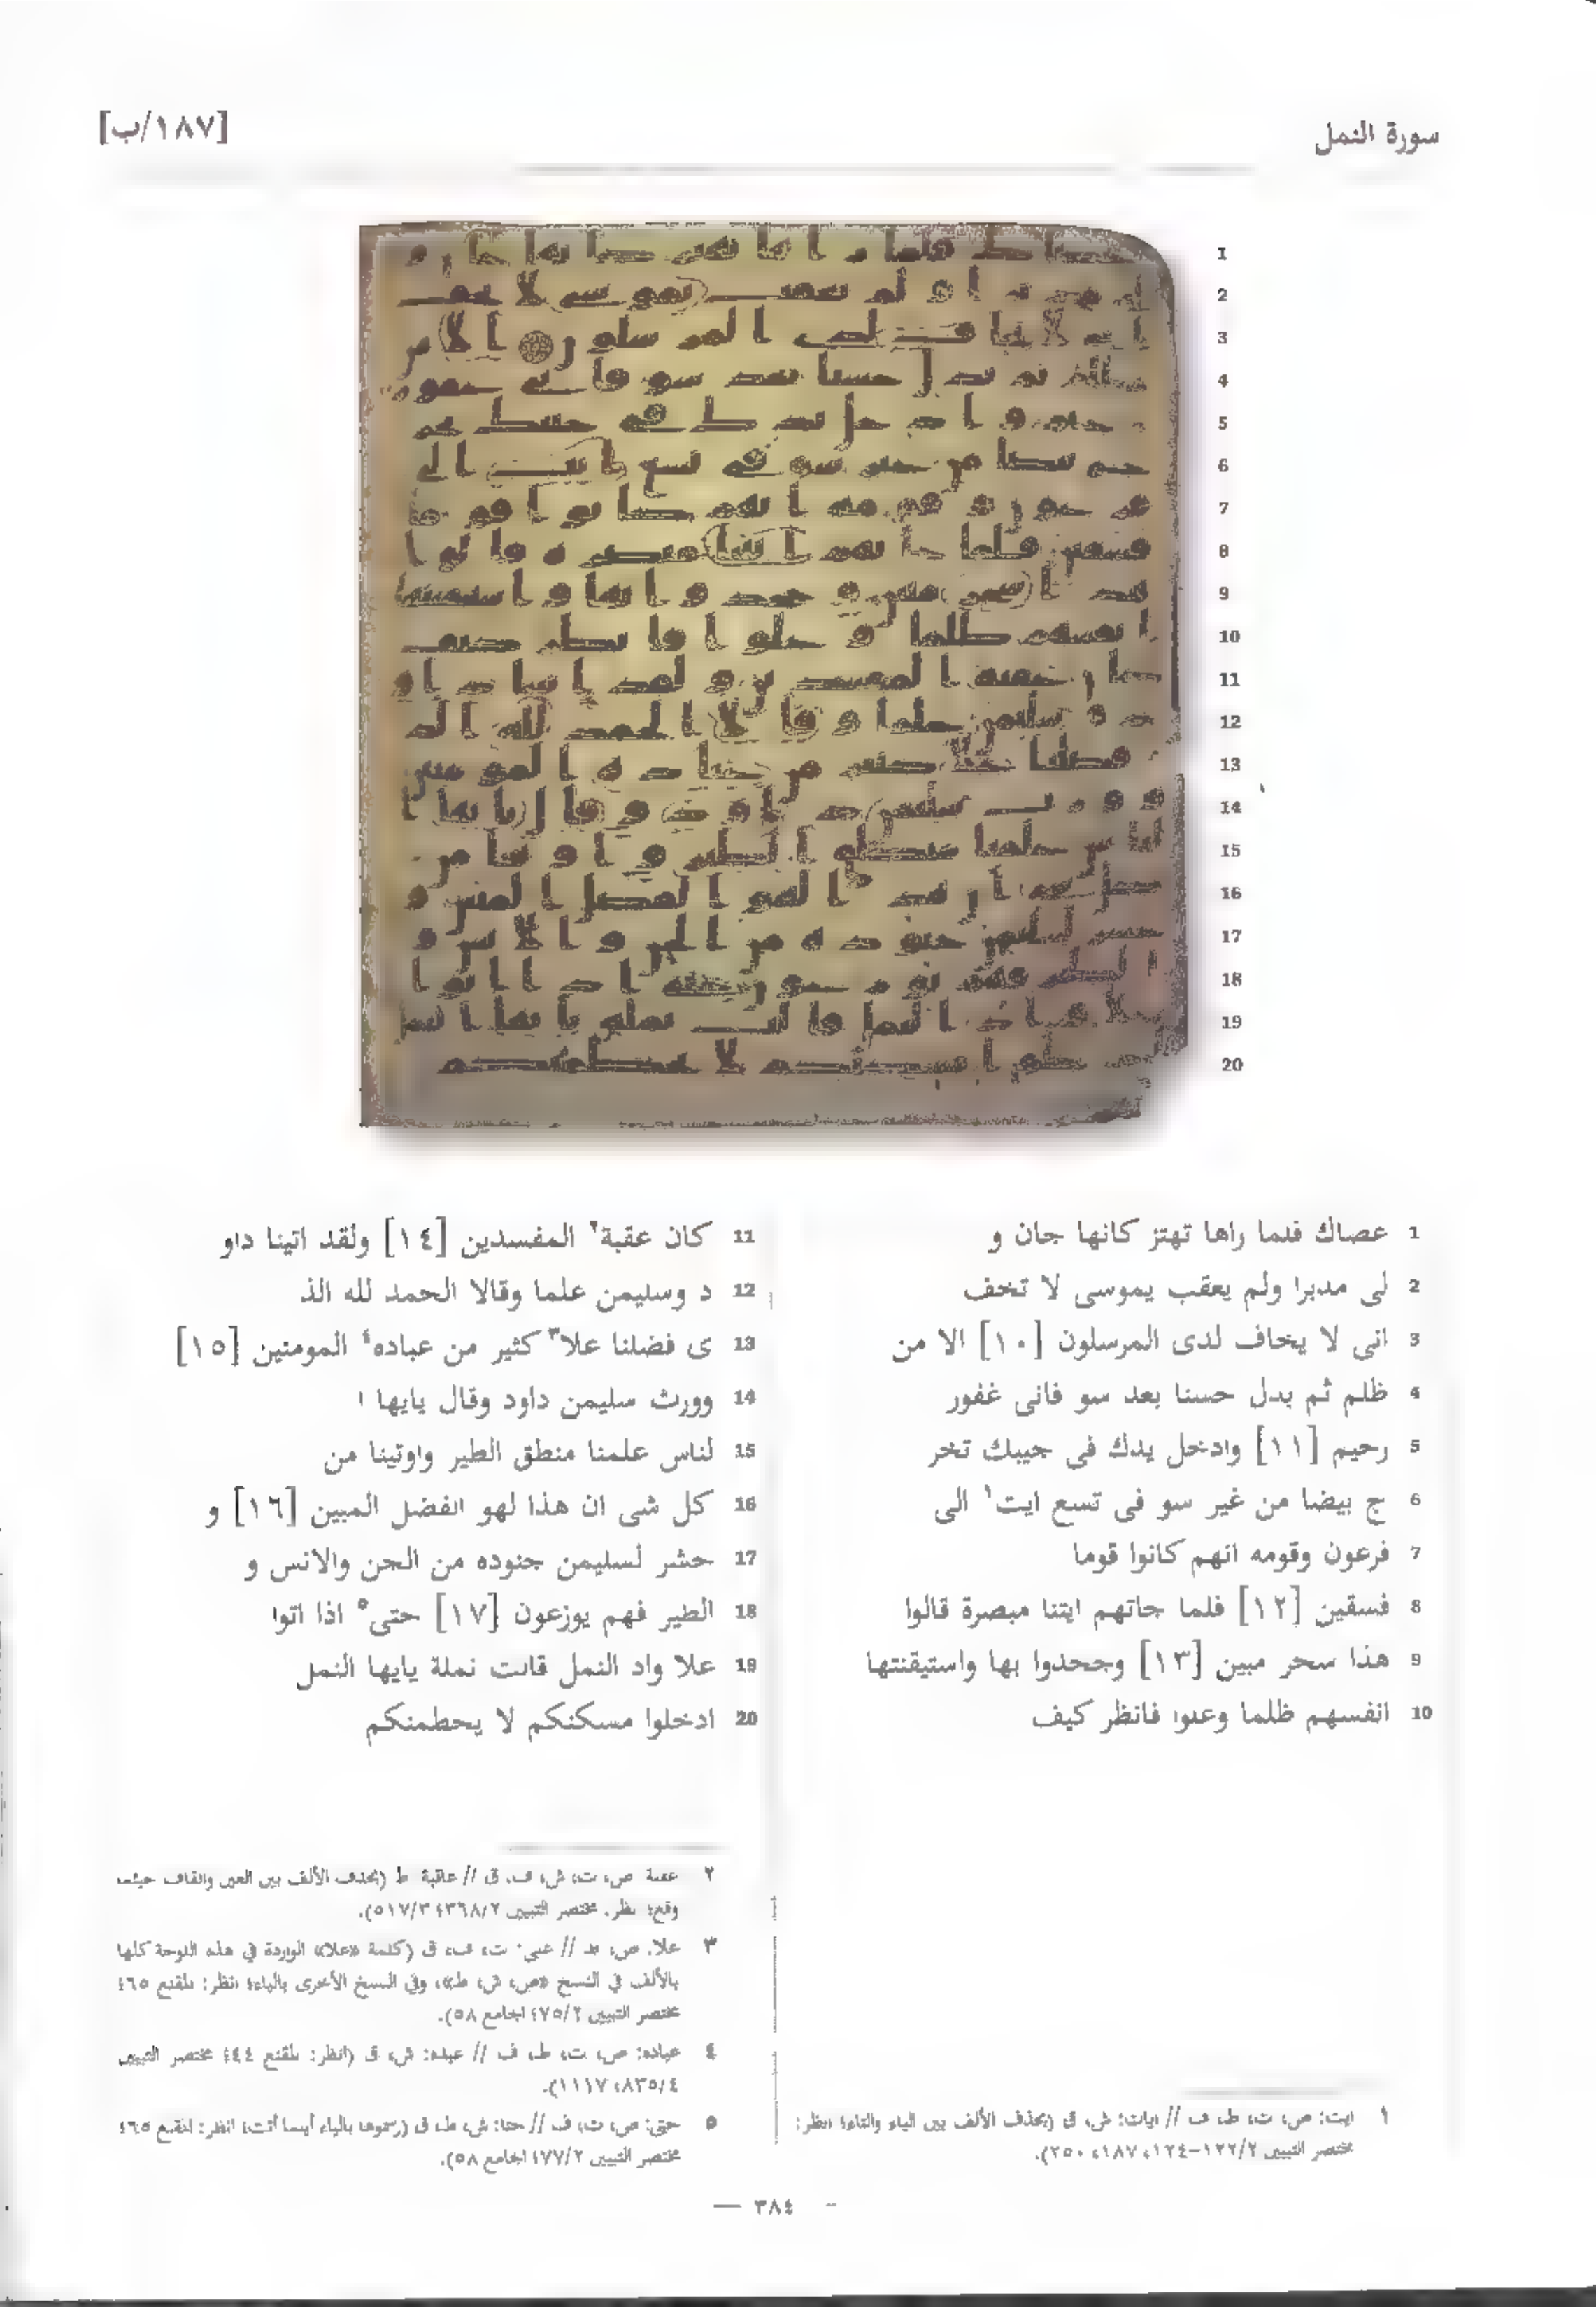 سورة النمل
[١٨٧/ب]
1 عصاك فلما راها تهتز كانها جان و
2 لى مدبرا ولم يعقب يموسى لا تخف
3 انى لا يخاف لدى المرسلون [١٠] الا من
4 ظلم ثم بدل حسنا بعد سو فانى غفور
5 رحيم [١١] وادخل يدك فى جيبك تخر
6 ج بيضا من غير سو فى تسع ايت١ الى
7 فرعون وقومه انهم كانوا قوما
8 فسقين [١٢] فلما جاتهم ايتنا مبصرة قالوا
9 هذا سحر مبين [١٣] وجحدوا بها واستيقنتها
10 انفسهم ظلما وعلوا فانظر كيف
11 كان عقبة٢ المفسدين [١٤] ولقد اتينا داو
12 د وسليمن علما وقالا الحمد لله الذ
13 ى فضلنا علا٣ كثير من عباده٤ المومنين [١٥]
14 وورث سليمن داود وقال يايها ا
15 لناس علمنا منطق الطير واوتينا من
16 كل شى ان هذا لهو الفضل المبين [١٦] و
17 حشر لسليمن جنوده من الجن والانس و
18 الطير فهم يوزعون [١٧] حتى٥ اذا اتوا
19 علا واد النمل قالت نملة يايها النمل
20 ادخلوا مسكنكم لا يحطمنكم
١ ايت: ص، ت، ط، ف // ايات: ش، ق (بحذف الألف بين الياء والتاء؛ انظر:
مختصر التبيين ١٢٢/٢-١٢٤، ١٨٧، ٢٥٠).
٢ عقبة: ص، ت، ش، ف، ق // عاقبة: ط (بحذف الألف بين العين والقاف حيثما
وقع؛ انظر: مختصر التبيين ٣٦٨/٢؛ ٥١٧/٣).
٣ علا: ص، ط // على: ت، ف، ق (كلمة «علا» الواردة في هذه اللوحة كلها
بالألف في النسخ «ص، ش، ط»، وفي النسخ الأخرى بالياء؛ انظر: المقنع ٤٦٥
مختصر التبيين ٧٥/٢؛ الجامع ٥٨).
٤ عباده: ص، ت، ط، ف // عبده: ش، ق (انظر: المقنع ٤٤؛ مختصر التبيين
٨٣٥/٤، ١١١٧).
٥ حتى: ص، ت، ف // حتا: ش، ط، ق (رسموها بالياء أينما أتت؛ انظر: المقنع ٤٦٥
مختصر التبيين ٧٧/٢؛ الجامع ٥٨).
— ٣٨٤ –